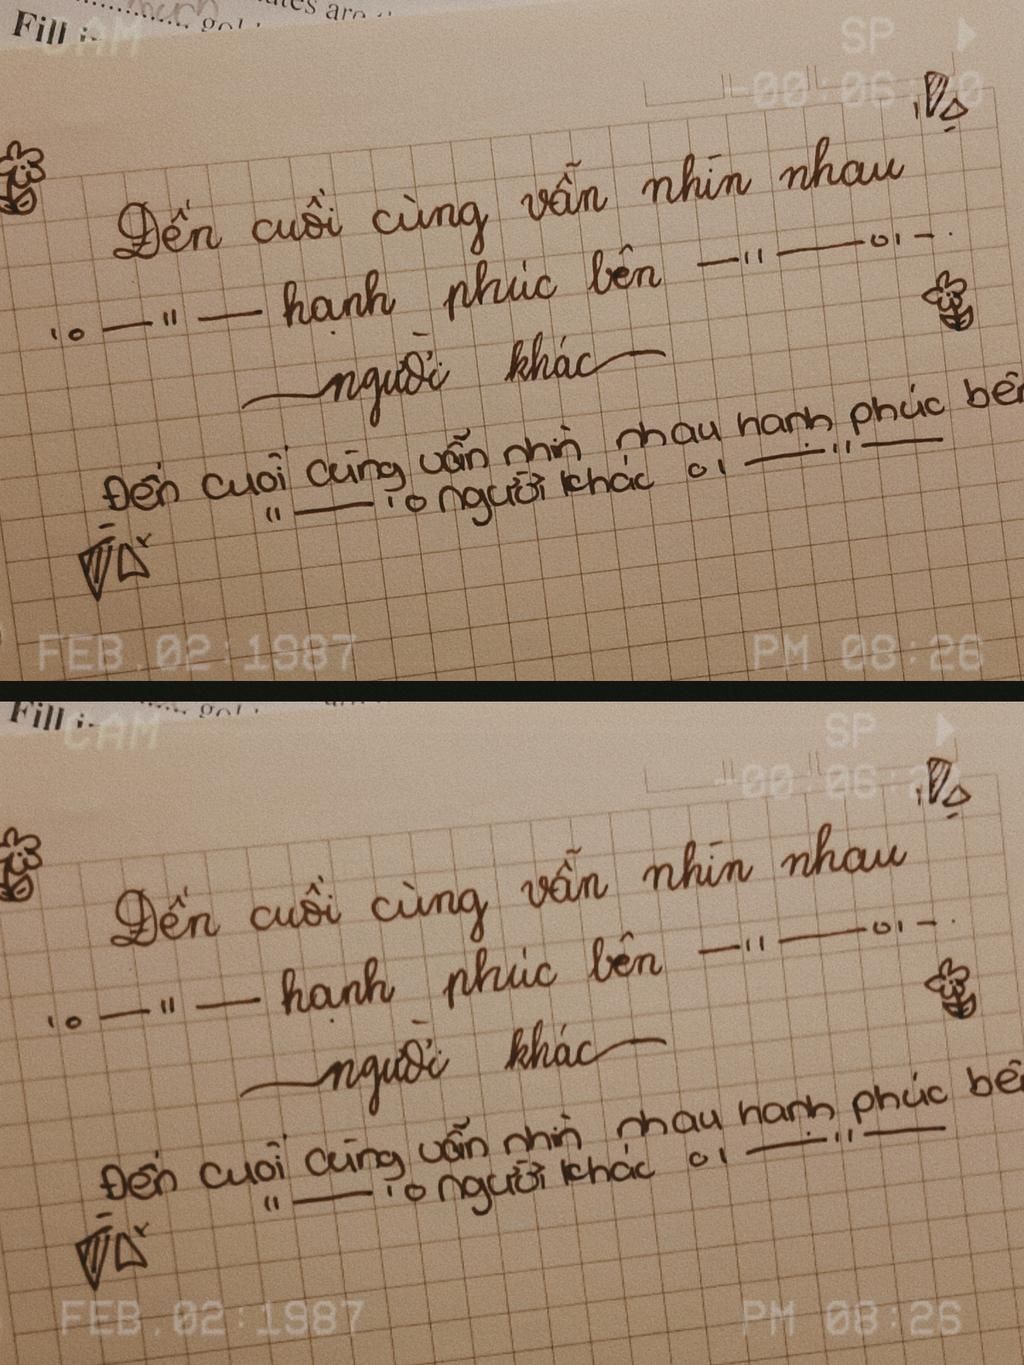 Fill
CAM
SP
-00:06:
Đến cuối cùng vẫn nhìn nhau
hạnh phúc bên
người khác
Đến cuối cùng vẫn nhìn nhau hạnh phúc bên
người khác
FEB.02:1987
PM 08:26
Fill
CAM
SP
-00:06:
Đến cuối cùng vẫn nhìn nhau
hạnh phúc bên
người khác
Đến cuối cùng vẫn nhìn nhau hạnh phúc bên
người khác
FEB.02:1987
PM 08:26